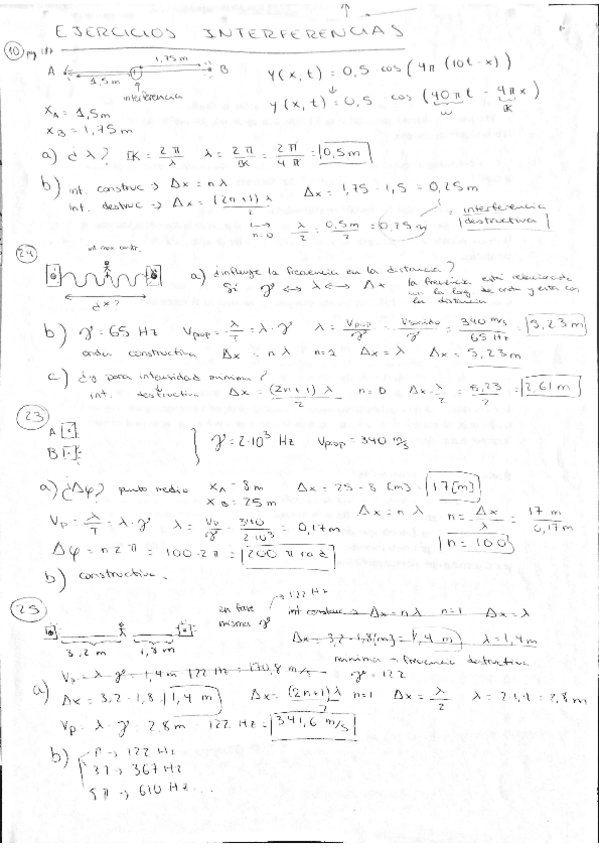 EJERCICIOS INTERFERENCIAS
10 pag 187
1,75m
A B
1,5m
interferencia
y(x,t) = 0,5 cos (4π (10t - x))
y(x,t) = 0,5 cos (40πt - 4πx)
ω K
x_A = 1,5m
x_B = 1,75m
a) ¿λ? K = 2π/λ λ = 2π/K = 2π/4π = 0,5m
b) int. construc → Δx = nλ Δx = 1,75 - 1,5 = 0,25m
int. destruc → Δx = (2n+1)λ/2
n=0 λ/2 = 0,5m/2 = 0,25m = interferencia destructiva
24
¿x?
a) ¿influye la frecuencia en la distancia?
Sí γ ↔ λ ↔ Δx la frecuencia está relacionada
la distancia
b) γ = 65 Hz Vprop = λ/T = λ·γ λ = Vprop/γ = Vsonido/γ = 340 m/s / 65 Hz = 5,23m
onda constructiva Δx = nλ n=1 Δx = λ Δx = 5,23m
c) ¿y para intensidad mínima?
int. destructiva Δx = (2n+1)λ/2 n=0 Δx = λ/2 = 5,23/2 = 2,61m
23
A
B
γ = 2·10³ Hz Vprop = 340 m/s
a) ¿Δφ? punto medio x_A = 8m Δx = 25 - 8 [m] = 17[m]
x_B = 25m
Δx = nλ n = Δx/λ = 17m/0,17m
Vp = λ/T = λ·γ λ = Vp/γ = 340/2·10³ = 0,17m
n = 100
Δφ = n2π = 100·2π = 200π rad
b) constructiva.
25
122 Hz
en fase
misma γ
int construc → Δx = nλ n=1 Δx = λ
3,2m 1,8m
Δx = 3,2 - 1,8[m] = 1,4m λ = 1,4m
mínima = frecuencia destructiva
Vp = λ·γ = 1,4m · 122 Hz = 170,8 m/s γ = 122
a) Δx = 3,2 - 1,8 = 1,4m Δx = (2n+1)λ/2 n=1 Δx = λ/2 λ = 2·1,4 = 2,8m
Vp = λ·γ = 2,8m · 122 Hz = 341,6 m/s
b) → 122 Hz
→ 367 Hz
→ 610 Hz...